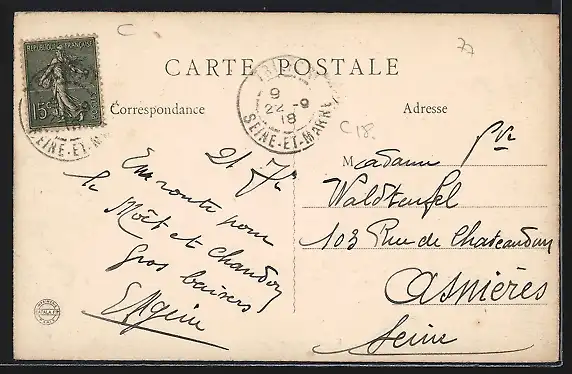 REPUBLIQUE FRANÇAISE
15c
C
77
CARTE POSTALE
9
22 -9
18
SEINE-ET-MARNE
SEINE-ET-MA
Correspondance
Adresse
C18
21 7bre
En route pour
la Môët et Chandon
gros baisers
Madame
Waldteufel
103 Rue de Chateaudun
Asnières
Seine